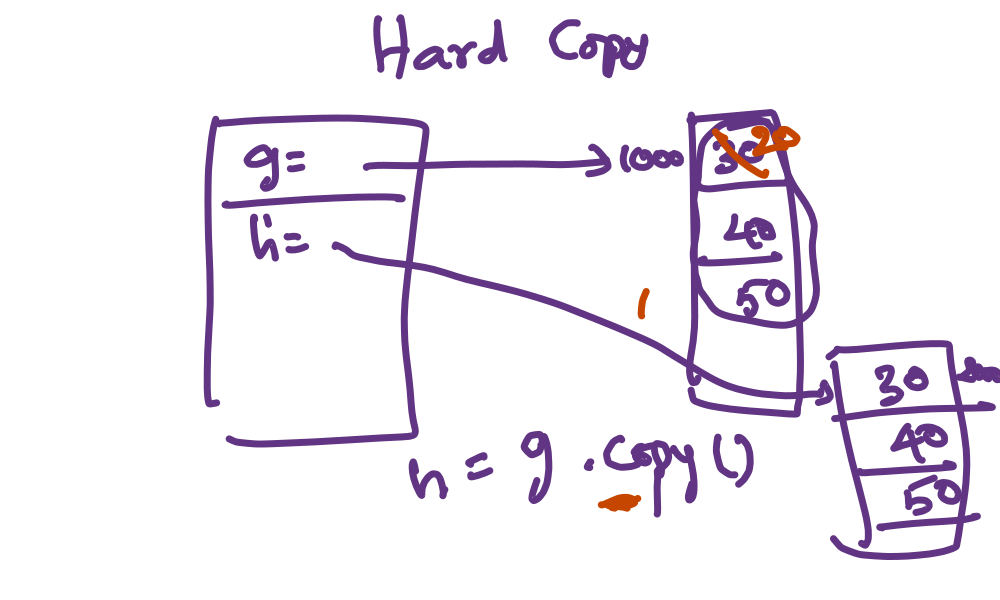 Hard Copy
g= 1000 30 20
h= 40
50
30
40
50
h = g .copy()